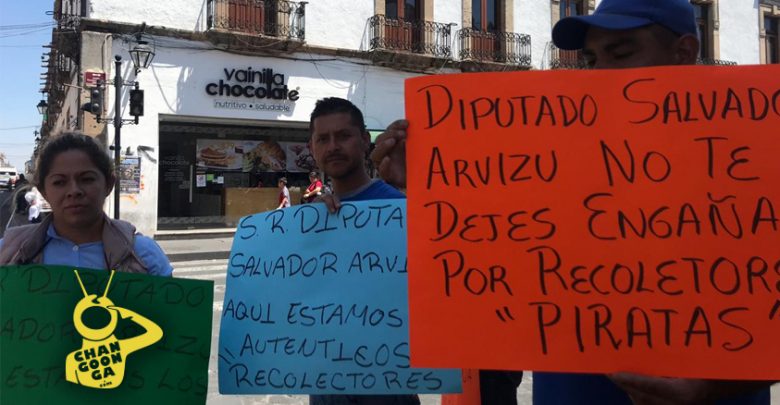 vainilla
chocolate
nutritivo • saludable
DIPUTADO SALVADO
ARVIZU NO TE
DEJES ENGAÑA
POR RECOLETORE
"PIRATAS"
S.R. DIPUTA
SALVADOR ARVI
AQUI ESTAMOS
AUTENTICOS
RECOLECTORES
DIPUTADO
ESTAMOS LOS
CHAN
GOON
GA
.com